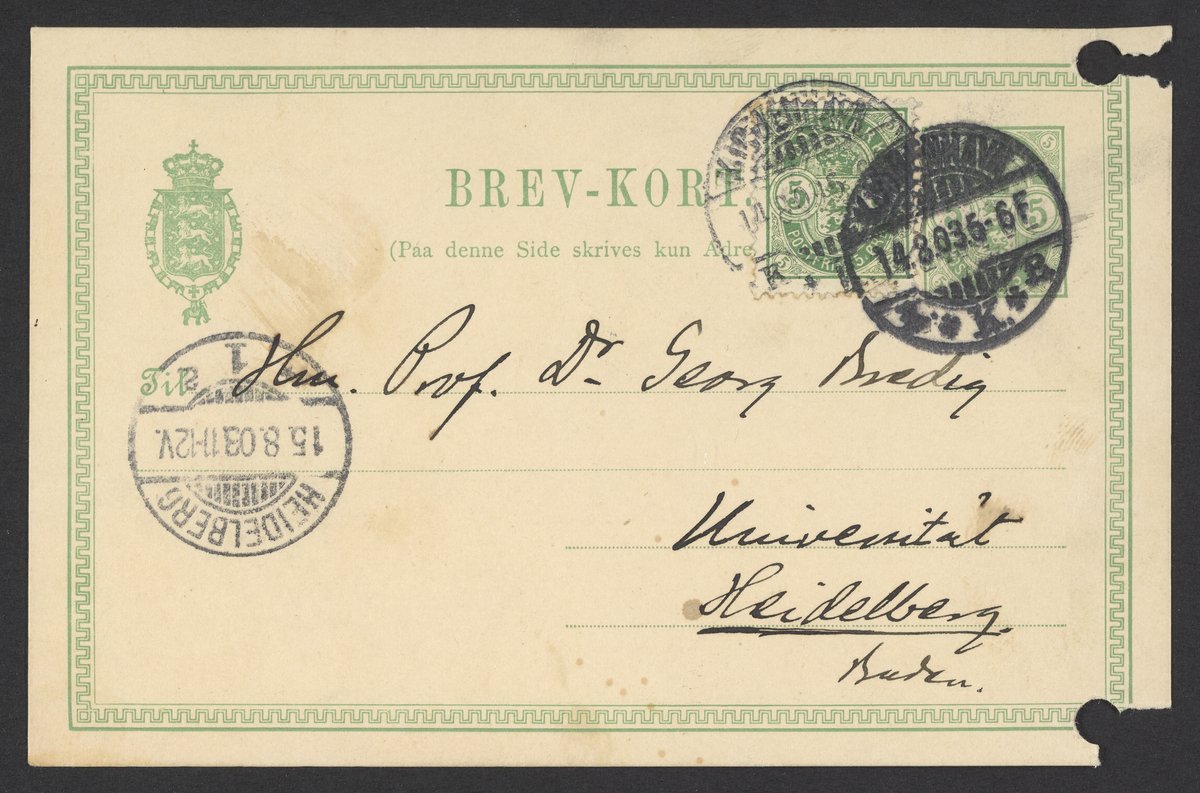 BREV-KORT.
(Paa denne Side skrives kun Adre
KJØBENHAVN
KJØBENHAVN
14.8.03.5-6F
K.
5
5
5
5
Til
Hrn. Prof. Dr Georg Bredig
1
15.8.03.11-12V.
HEIDELBERG
Universität
Heidelberg.
Baden.